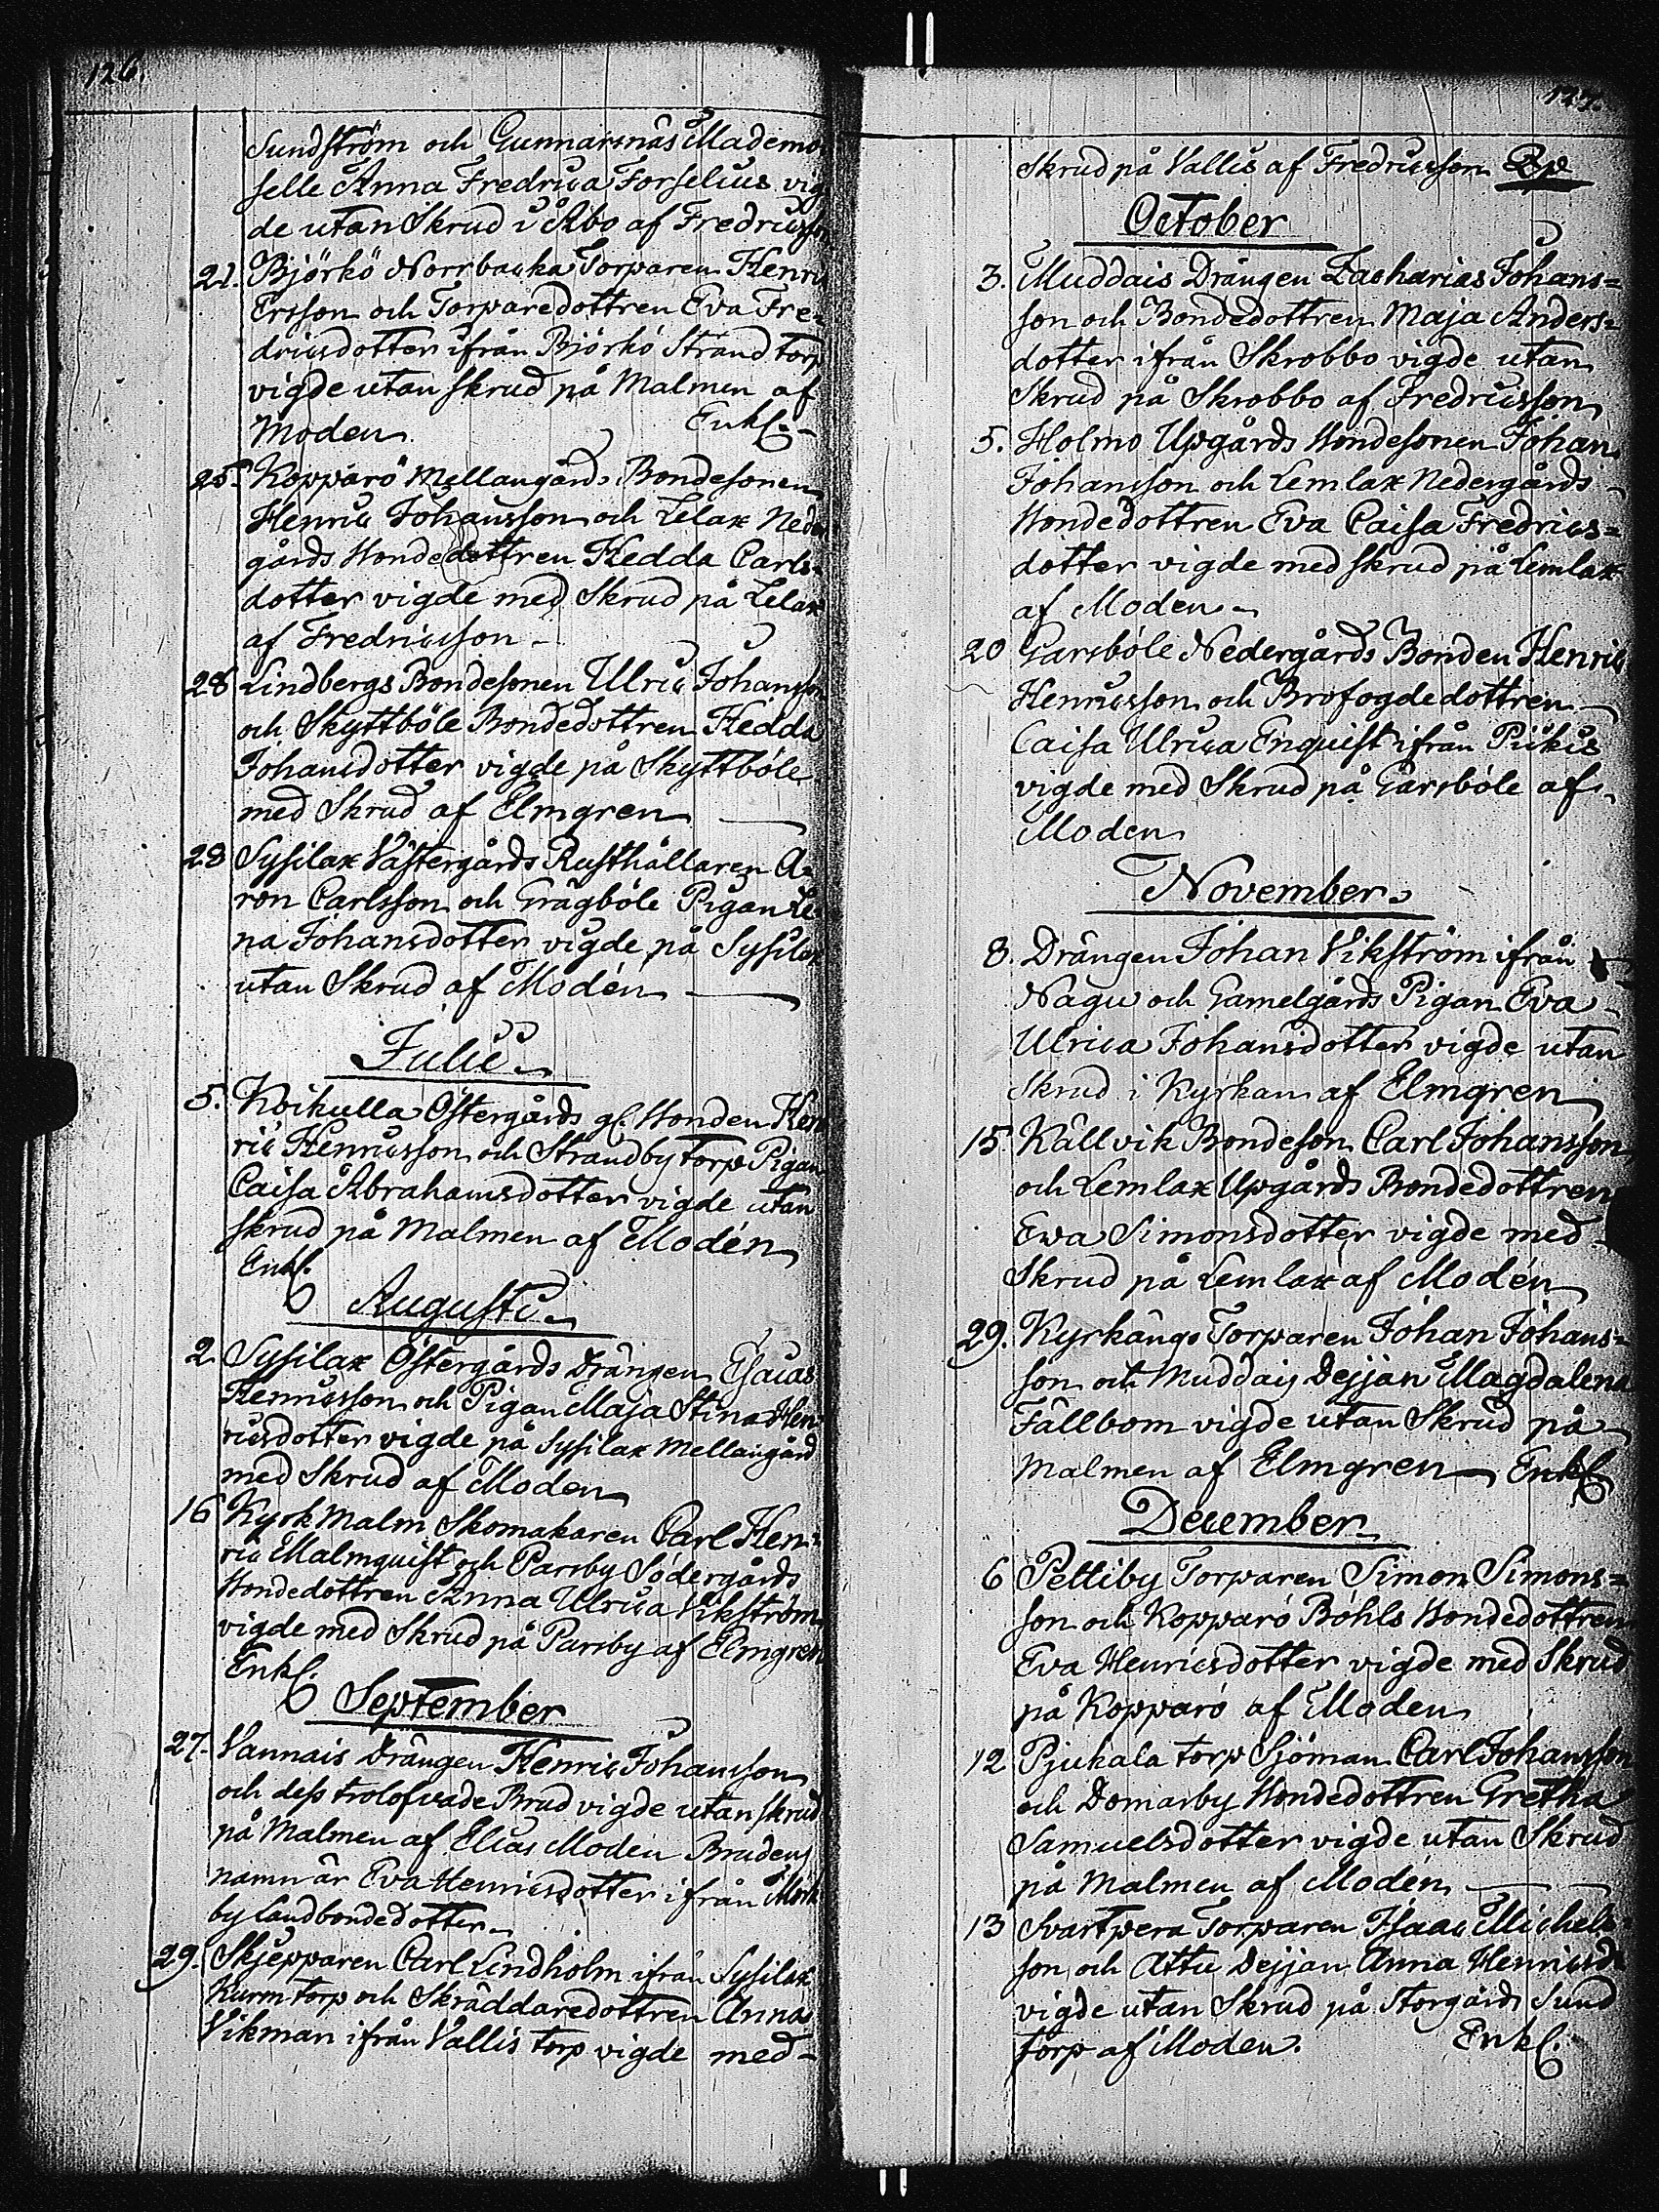 126.
Sundström och Gunnarsnäs Mademo
selle Anna Fredrica Forselius vig
de utan Skrud i Åbo af Fredricsson
21. Björkö Norrbacka Torparen Henric
Ersson och Torparedottren Eva Fre-
dricsdotter ifrån Björkö Strand torp
vigde utan skrud på Malmen af
Moden Enkl.
25. Kopparö Mellangårds Bondesonen
Henric Johansson och Lelax Neder
gårds Hondedottren Hedda Carls-
dotter vigde med Skrud på Lelax
af Fredricsson
28 Lindbergs Bondesonen Ulric Johansson
och Skyttböle Bondedottren Hedda
Johansdotter vigde på Skyttböle
med Skrud af Elmgren
28 Sysilax Västergårds Rusthållaren A-
ron Carlsson och Grägböle Pigan Le-
na Johansdotter vigde på Sysilax
utan Skrud af Modén
Julii
5. Koikulla Östergårds gl. Honden Hen
ric Henricsson och Strandby torp Pigan
Caisa Abrahamsdotter vigde utan
skrud på Malmen af Modén
Enkl.
Augusti
2. Sysilax Östergårds Drängen Esaias
Henricsson och Pigan Maja Stina Hen
ricsdotter vigde på Sysilax Mellangård
med Skrud af Moden
16 Kyrk Malm Skomakaren Carl Hen-
ric Malmquist och Parsby Södergårds
Hondedottren Anna Ulrica Vikström
vigde med Skrud på Parsby af Elmgren
Enkl.
September
27. Vannais Drängen Henric Johansson
och dess trolofvade Brud vigde utan skrud
på Malmen af Elias Moden Brudens
namn är Eva Henricsdotter ifrån Mörk
by Landbondedotter
29. Skjepparen Carl Lindholm ifrån Sysilax
Kurm torp och Skräddaredottren Anna
Vikman ifrån Vallis torp vigde med
127.
Skrud på Vallis af Fredricsson
October
3. Muddais Drängen Zacharias Johans=
son och Bondedottren Maja Anders=
dotter ifrån Skrobbo vigde utan
Skrud på Skrobbo af Fredricsson
5. Holmo Upgårds Hondesonen Johan
Johansson och Lemlax Nedergårds
Hondedottren Eva Caisa Fredrics=
dotter vigde med skrud på Lemlax
af Moden
20 Garsböle Nedergårds Bonden Henric
Henricsson och Brofogdedottren
Caisa Ulrica Enquist ifrån Piikis
vigde med Skrud på Garsböle af
Moden
November
8. Drängen Johan Vikström ifrån
Nagu och Gamelgårds Pigan Eva
Ulrica Johansdotter vigde utan
Skrud i Kyrkan af Elmgren
15 Källvik Bondeson Carl Johansson
och Lemlax Upgårds Bondedottren
Ewa Simonsdotter vigde med
Skrud på Lemlax af Modén
29. Kyrkängs Torparen Johan Johans=
son och Muddais Dejjan Magdalena
Fällbom vigde utan Skrud på
Malmen af Elmgren Enkl
December
6 Pettiby Torparen Simon Simons=
son och Kopparö Böhls Hondedottren
Eva Henricsdotter vigde med Skrud
på Kopparö af Moden
12 Pjukala torp Sjöman Carl Johansson
och Domarby Hondedottren Gretha
Samuelsdotter vigde utan Skrud
på Malmen af Modén
13 Svartpera Torparen Isaac Michels=
son och Attu Dejjan Anna Henricsd
vigde utan Skrud på Storgårds Sund
torp af Moden. Enkl.